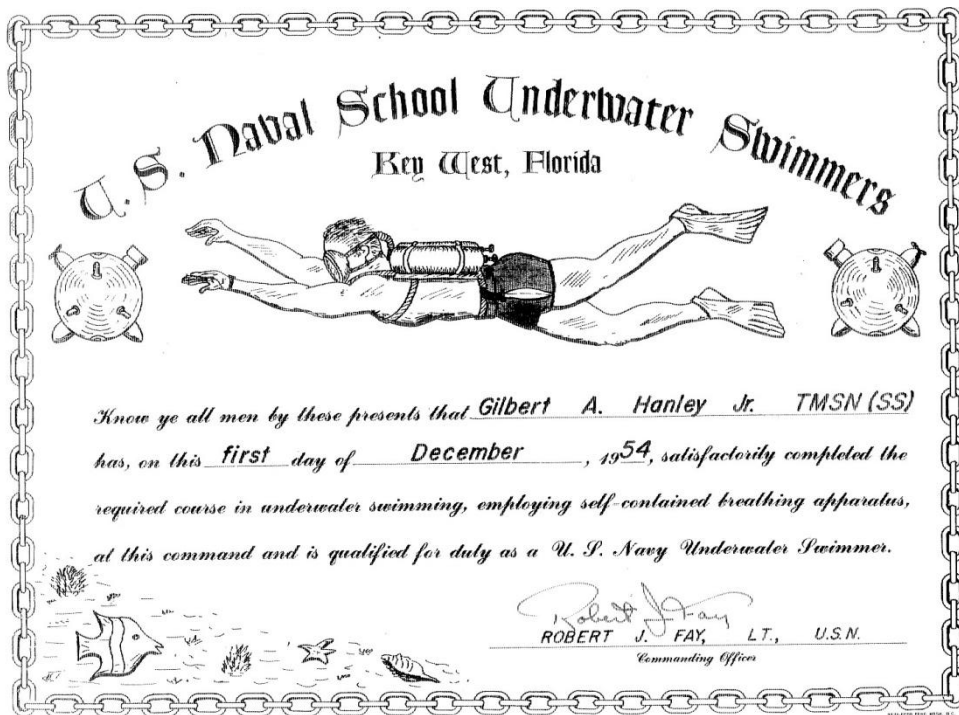 U. S. Naval School Underwater Swimmers
Key West, Florida
Know ye all men by these presents that Gilbert A. Hanley Jr. TMSN (SS)
has, on this first day of December, 1954, satisfactorily completed the
required course in underwater swimming, employing self-contained breathing apparatus,
at this command and is qualified for duty as a U. S. Navy Underwater Swimmer.
Robert J. Fay
ROBERT J. FAY, LT., U.S.N.
Commanding Officer